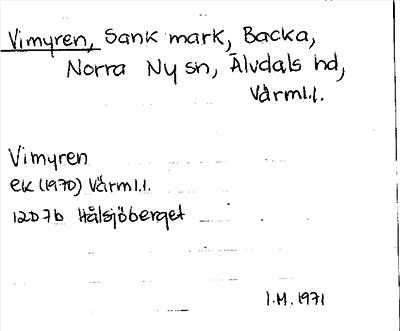 Vimyren, Sank mark, Backa,
Norra Ny sn, Älvdals hd,
Värml.l.
Vimyren
ek (1970) Värml.l.
12D7b Hålsjöberget
I.M. 1971